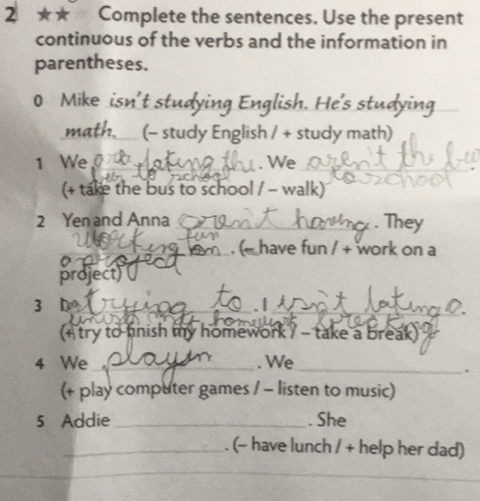 2 ★★ Complete the sentences. Use the present
continuous of the verbs and the information in
parentheses.
0 Mike isn't studying English. He's studying
math. (– study English / + study math)
1 We are tating the. We aren't the
to school to school
(+ take the bus to school / – walk)
2 Yen and Anna aren't having. They
fun
working on. (– have fun / + work on a
a project
project)
3 trying to. I isn't tating a.
(+ try to finish my homework / – take a break)
4 We playin. We .
(+ play computer games / – listen to music)
5 Addie . She
. (– have lunch / + help her dad)